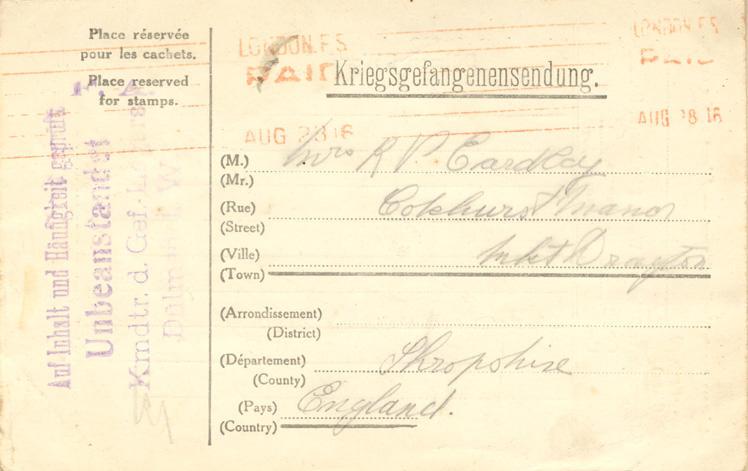 Place réservée
pour les cachets.
Place reserved
for stamps.
LONDON.F.S
PAID
AUG 28 16
LONDON.F.S
PAID
AUG 28 16
Kriegsgefangenensendung.
(M.) Mrs R P. Eardley
(Mr.)
(Rue) Cotehurst Manor
(Street)
(Ville) Mkt Drayton
(Town)
(Arrondissement)
(District)
(Département) Shropshire
(County)
(Pays) England.
(Country)
Auf Inhalt und Häufigkeit geprüft
Unbeanstandet
Kmdtr. d. Gef.-
i. W.